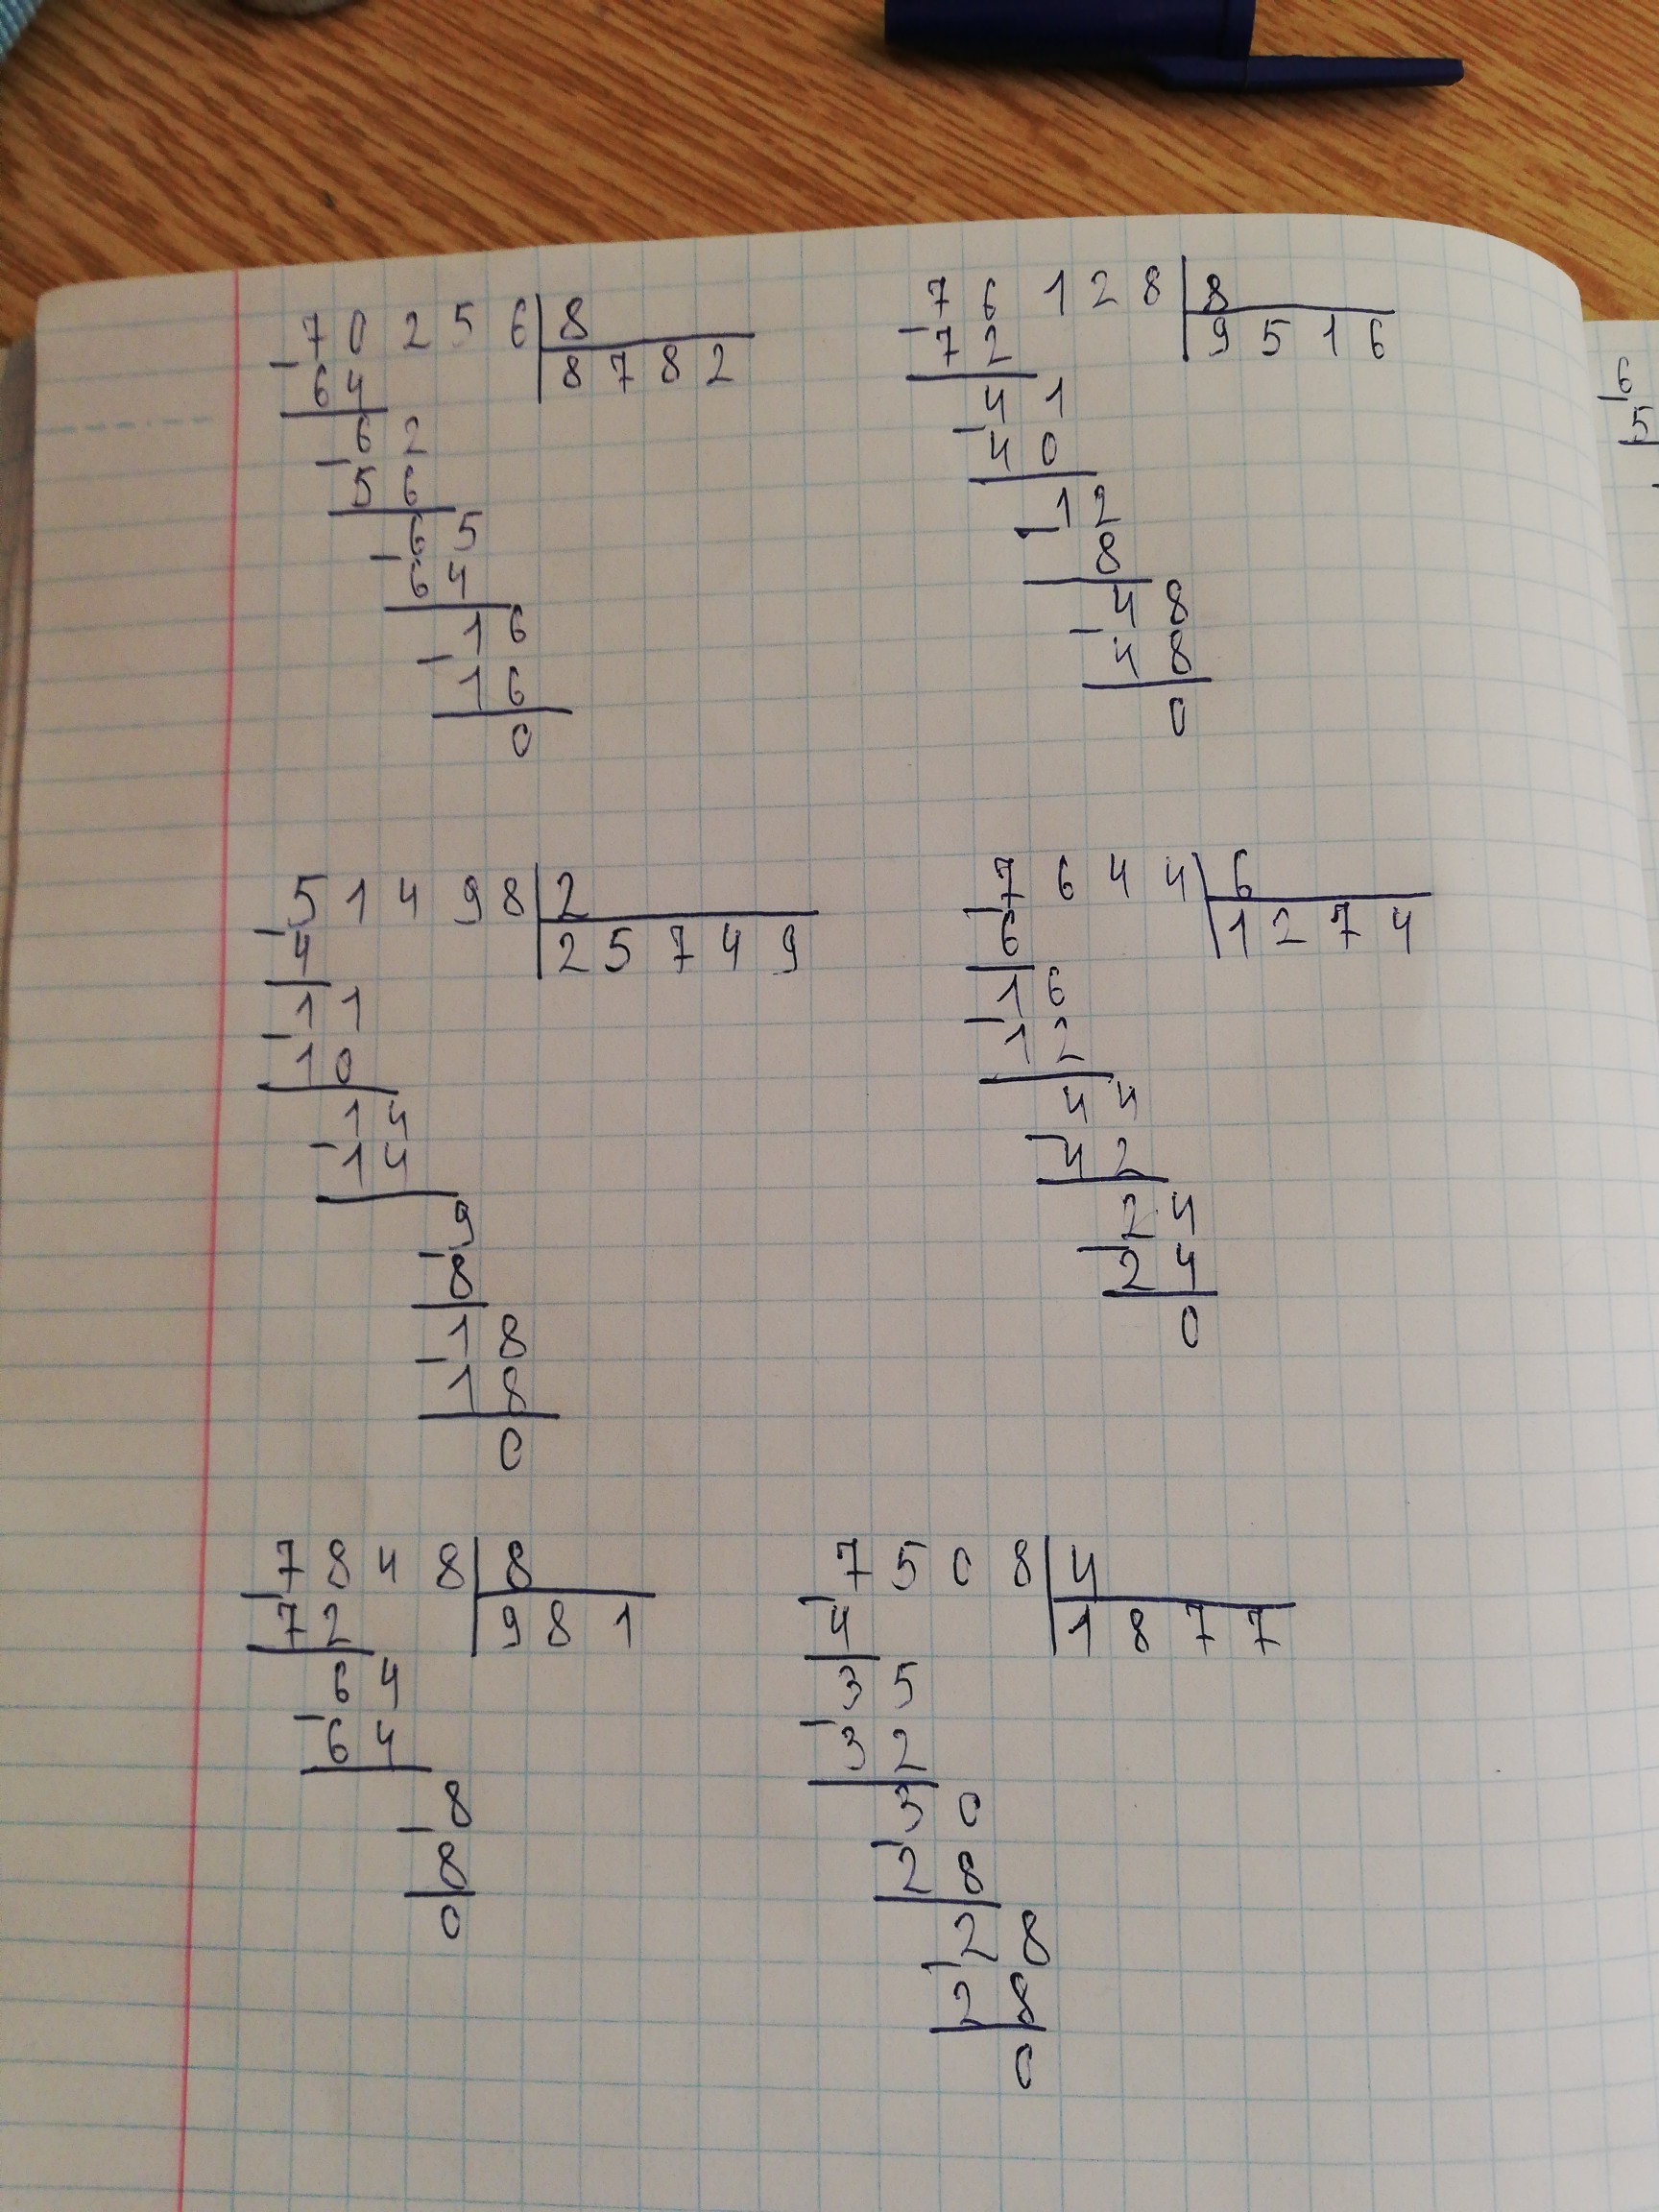 70256|8
64 8782
62
56
65
64
16
16
0
76128|8
72 9516
41
40
12
8
48
48
0
51498|2
4 25749
11
10
14
14
9
8
18
18
0
7644|6
6 1274
16
12
44
42
24
24
0
7848|8
72 981
64
64
8
8
0
7508|4
4 1877
35
32
30
28
28
28
0
6
5